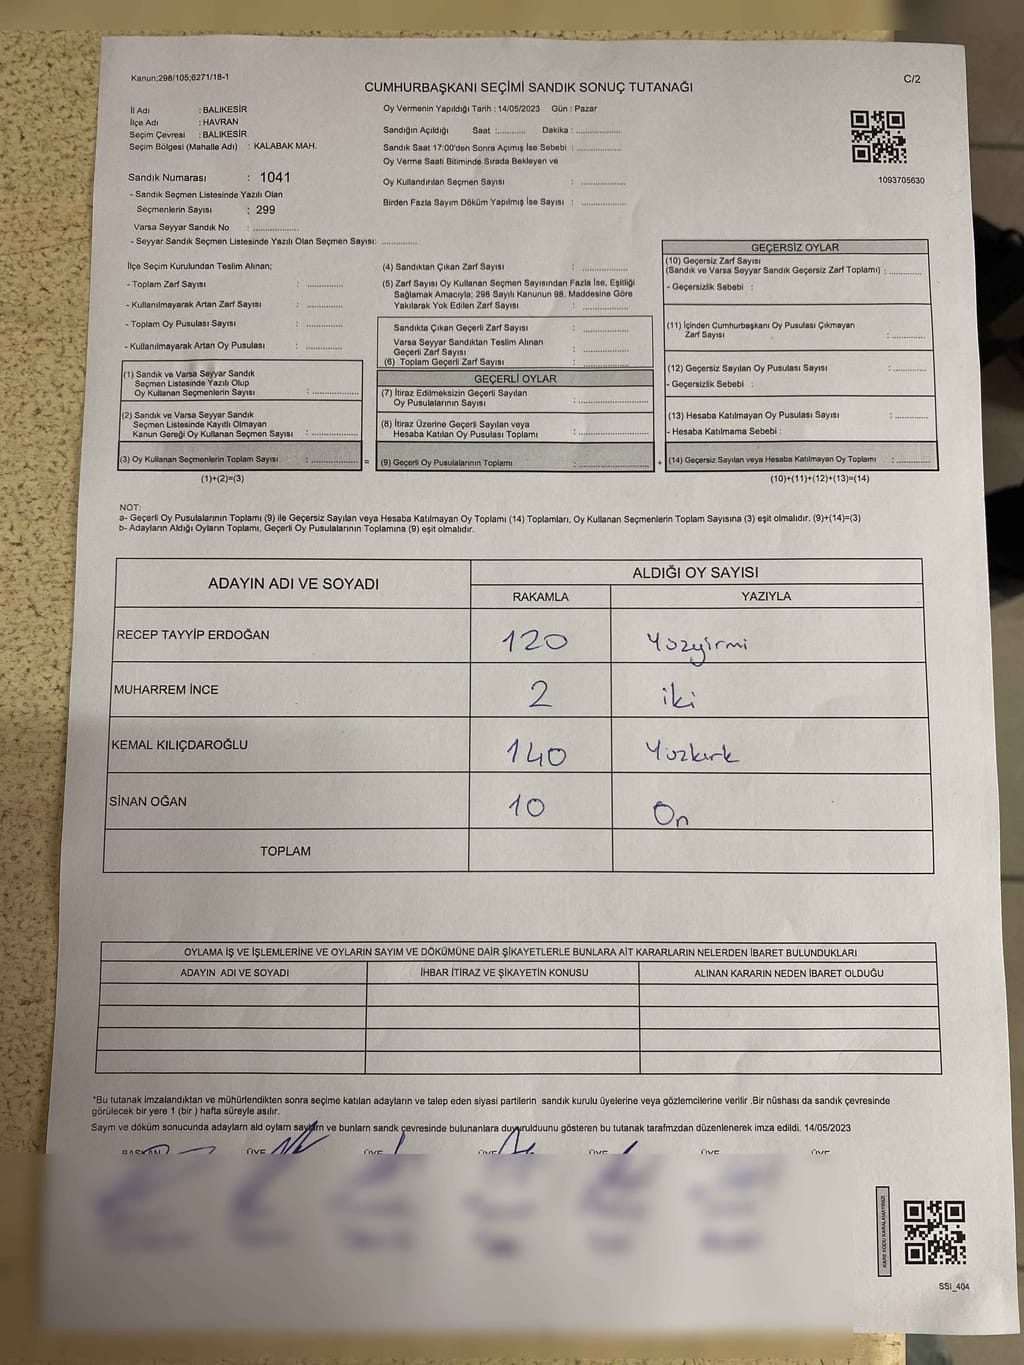 Kanun;298/105;6271/18-1
C/2
CUMHURBAŞKANI SEÇİMİ SANDIK SONUÇ TUTANAĞI
İl Adı : BALIKESİR
İlçe Adı : HAVRAN
Seçim Çevresi : BALIKESİR
Seçim Bölgesi (Mahalle Adı) : KALABAK MAH.
Sandık Numarası : 1041
- Sandık Seçmen Listesinde Yazılı Olan
Seçmenlerin Sayısı : 299
Varsa Seyyar Sandık No : ..............
- Seyyar Sandık Seçmen Listesinde Yazılı Olan Seçmen Sayısı: ...........
Oy Vermenin Yapıldığı Tarih : 14/05/2023 Gün : Pazar
Sandığın Açıldığı Saat :......... Dakika : ..............
Sandık Saat 17:00'den Sonra Açımış İse Sebebi : ..............
Oy Verme Saati Bitiminde Sırada Bekleyen ve
Oy Kullandırılan Seçmen Sayısı : ..............
Birden Fazla Sayım Döküm Yapılmış İse Sayısı : ..............
1093705630
İlçe Seçim Kurulundan Teslim Alınan;
- Toplam Zarf Sayısı : ...........
- Kullanılmayarak Artan Zarf Sayısı : ...........
- Toplam Oy Pusulası Sayısı : ...........
- Kullanılmayarak Artan Oy Pusulası : ...........
(1) Sandık ve Varsa Seyyar Sandık
Seçmen Listesinde Yazılı Olup
Oy Kullanan Seçmenlerin Sayısı : ..............
(2) Sandık ve Varsa Seyyar Sandık
Seçmen Listesinde Kayıtlı Olmayan
Kanun Gereği Oy Kullanan Seçmen Sayısı : ..............
(3) Oy Kullanan Seçmenlerin Toplam Sayısı : ..............
(1)+(2)=(3)
=
(4) Sandıktan Çıkan Zarf Sayısı : ..............
(5) Zarf Sayısı Oy Kullanan Seçmen Sayısından Fazla İse, Eşitliği
Sağlamak Amacıyla; 298 Sayılı Kanunun 98. Maddesine Göre
Yakılarak Yok Edilen Zarf Sayısı : ..............
Sandıkta Çıkan Geçerli Zarf Sayısı : ..............
Varsa Seyyar Sandıktan Teslim Alınan
Geçerli Zarf Sayısı : ..............
(6) Toplam Geçerli Zarf Sayısı : ..............
GEÇERLİ OYLAR
(7) İtiraz Edilmeksizin Geçerli Sayılan
Oy Pusulalarının Sayısı : ..............
(8) İtiraz Üzerine Geçerli Sayılan veya
Hesaba Katılan Oy Pusulası Toplamı : ..............
(9) Geçerli Oy Pusulalarının Toplamı : ..............
+
GEÇERSİZ OYLAR
(10) Geçersiz Zarf Sayısı
(Sandık ve Varsa Seyyar Sandık Geçersiz Zarf Toplamı) : ..........
- Geçersizlik Sebebi :
(11) İçinden Cumhurbaşkanı Oy Pusulası Çıkmayan
Zarf Sayısı : ..........
(12) Geçersiz Sayılan Oy Pusulası Sayısı : ..........
- Geçersizlik Sebebi :
(13) Hesaba Katılmayan Oy Pusulası Sayısı : ..........
- Hesaba Katılmama Sebebi :
(14) Geçersiz Sayılan veya Hesaba Katılmayan Oy Toplamı : ..........
(10)+(11)+(12)+(13)=(14)
NOT:
a- Geçerli Oy Pusulalarının Toplamı (9) ile Geçersiz Sayılan veya Hesaba Katılmayan Oy Toplamı (14) Toplamları, Oy Kullanan Seçmenlerin Toplam Sayısına (3) eşit olmalıdır. (9)+(14)=(3)
b- Adayların Aldığı Oyların Toplamı, Geçerli Oy Pusulalarının Toplamına (9) eşit olmalıdır.
ADAYIN ADI VE SOYADI
ALDIĞI OY SAYISI
RAKAMLA YAZIYLA
RECEP TAYYİP ERDOĞAN 120 Yüzyirmi
MUHARREM İNCE 2 iki
KEMAL KILIÇDAROĞLU 140 Yüzkırk
SİNAN OĞAN 10 On
TOPLAM
OYLAMA İŞ VE İŞLEMLERİNE VE OYLARIN SAYIM VE DÖKÜMÜNE DAİR ŞİKAYETLERLE BUNLARA AİT KARARLARIN NELERDEN İBARET BULUNDUKLARI
ADAYIN ADI VE SOYADI İHBAR İTİRAZ VE ŞİKAYETİN KONUSU ALINAN KARARIN NEDEN İBARET OLDUĞU
*Bu tutanak imzalandıktan ve mühürlendikten sonra seçime katılan adayların ve talep eden siyasi partilerin sandık kurulu üyelerine veya gözlemcilerine verilir .Bir nüshası da sandık çevresinde
görülecek bir yere 1 (bir ) hafta süreyle asılır.
Sayım ve döküm sonucunda adayların ald oyların sayların ve bunların sandk çevresinde bulunanlara duyurulduunu gösteren bu tutanak tarafmzdan düzenlenerek imza edildi. 14/05/2023
BAŞKAN ÜYE ÜYE ÜYE ÜYE ÜYE ÜYE
KARE KODU KARALAMAYINIZ!
SSI_404